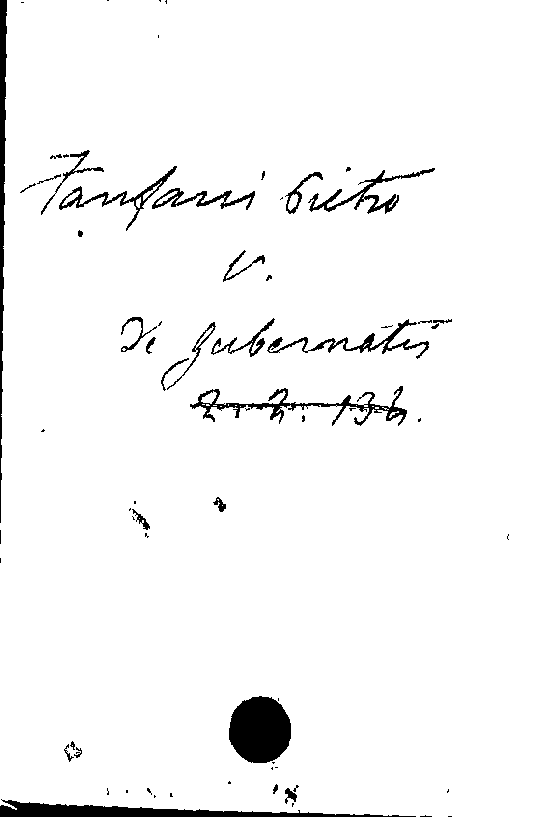 Fanfani Pietro
v.
De Gubernatis
2. 2. 136.